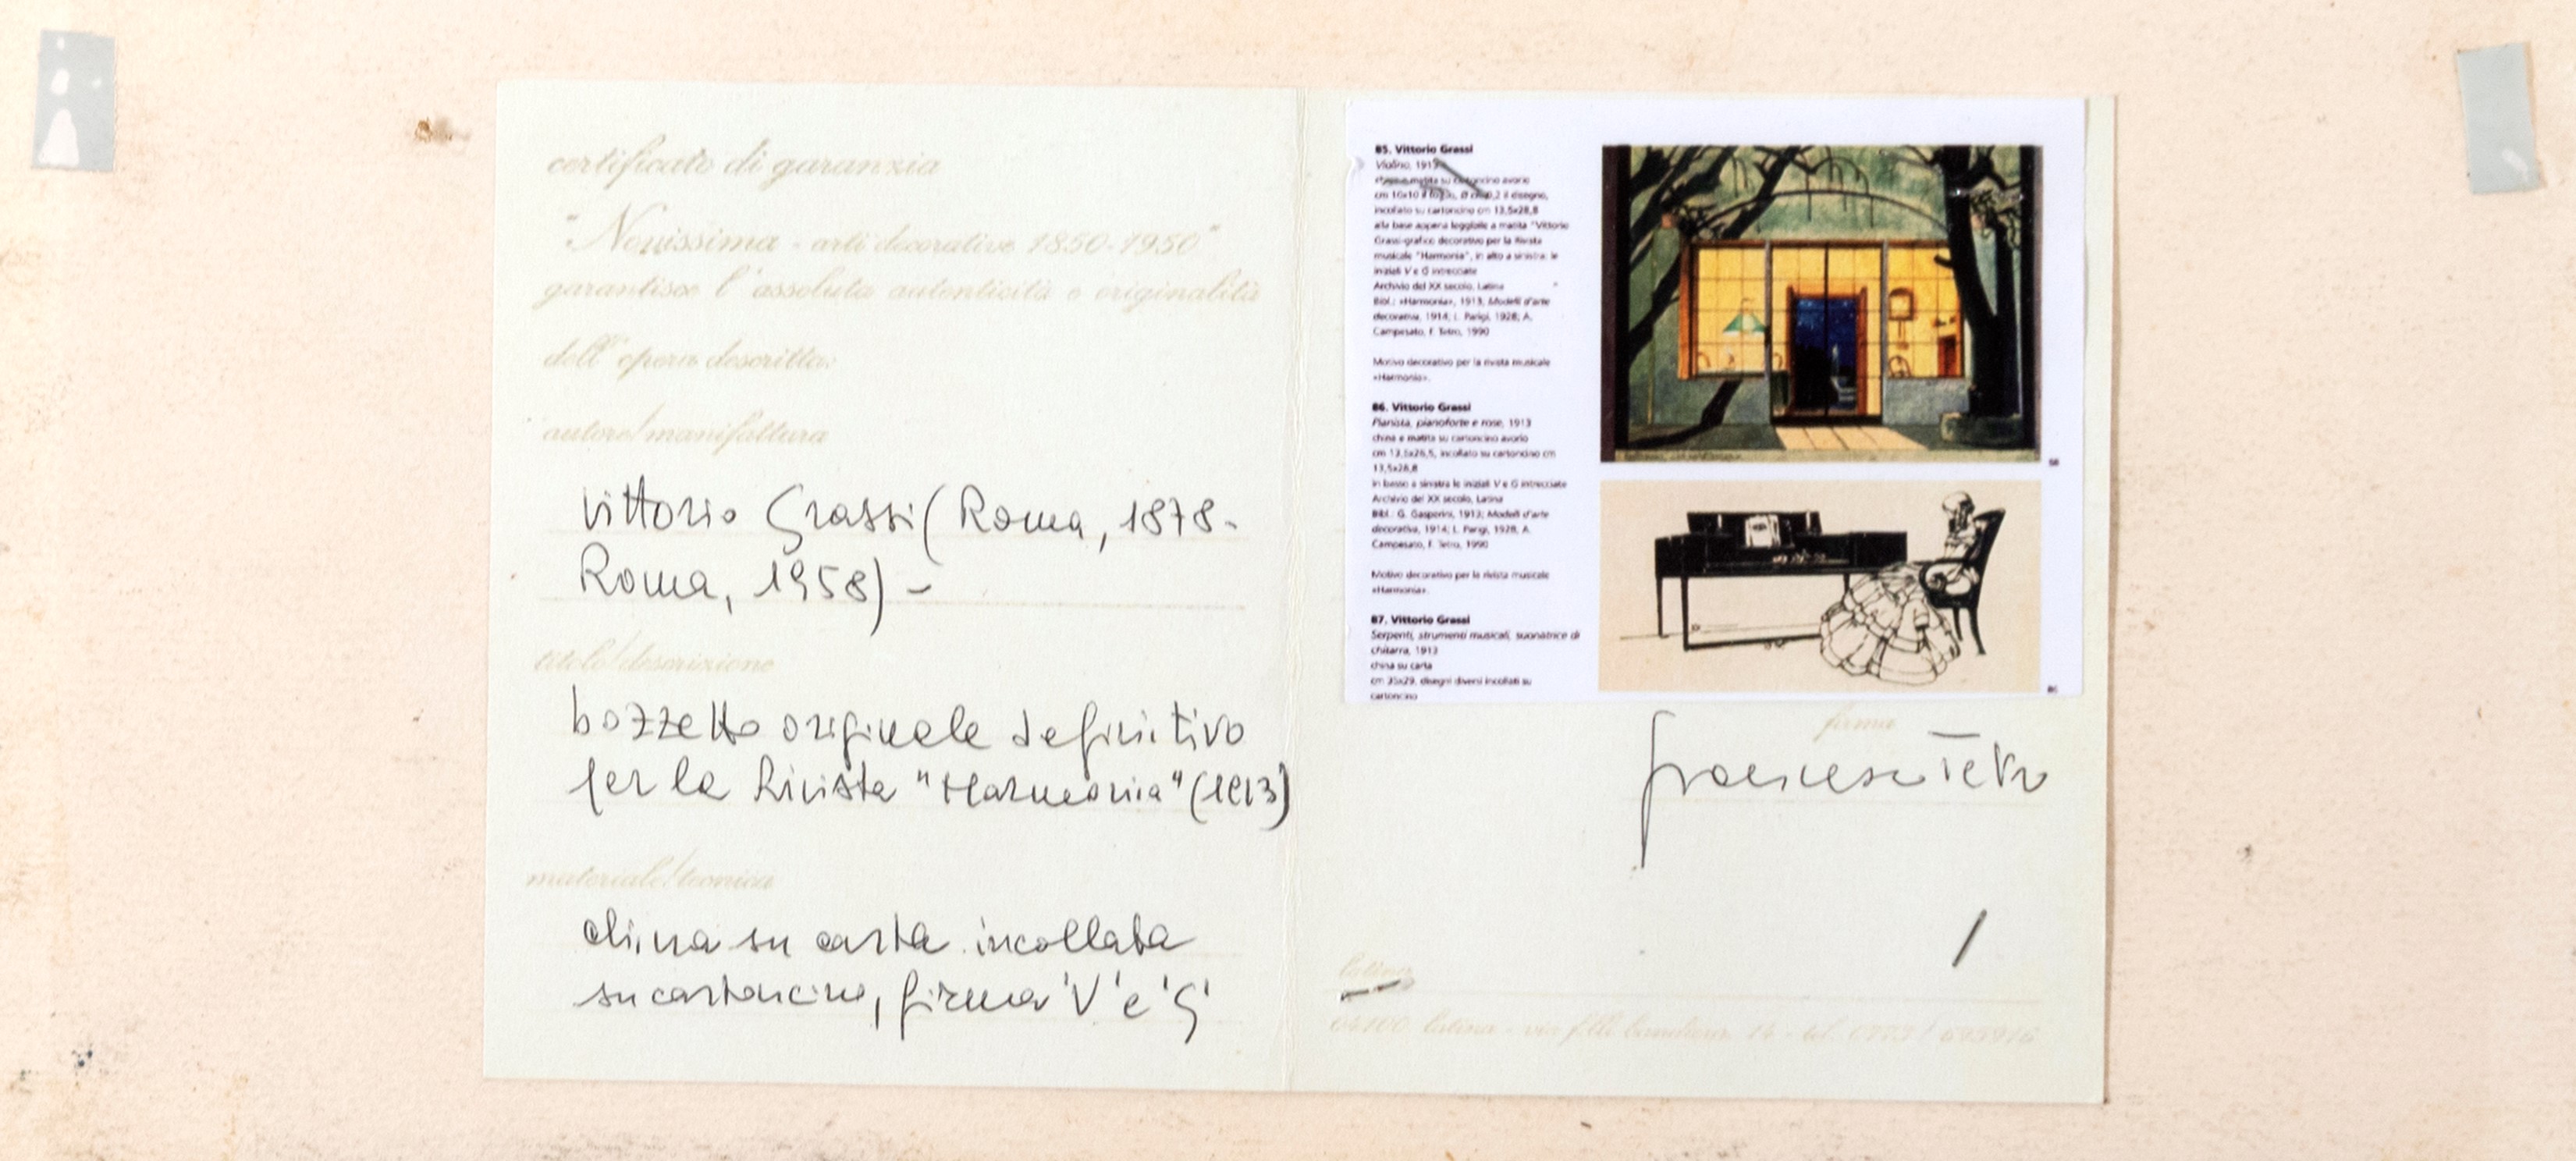 certificato di garanzia
"Novissima - arti decorative 1850-1950"
garantisce l'assoluta autenticità e originalità
dell'opera descritta:
autore/manifattura
Vittorio Grassi (Roma, 1878-
Roma, 1958) -
titolo/descrizione
bozzetto originale definitivo
per la Rivista "Harmonia" (1913)
materiale/tecnica
china su carta incollata
su cartoncino, firma 'V' e 'G'
85. Vittorio Grassi
Violino, 1913
china e matita su cartoncino avorio
cm 16x10 il foglio, Ø cm 0,2 il disegno,
incollato su cartoncino cm 13,5x28,8
alla base appena leggibile a matita "Vittorio
Grassi-grafico decorativo per la Rivista
musicale "Harmonia", in alto a sinistra: le
iniziali V e G intrecciate
Archivio del XX secolo, Latina
Bibl.: «Harmonia», 1913; Modelli d'arte
decorativa, 1914; L. Parigi, 1928; A.
Campesato, F. Tetro, 1990
Motivo decorativo per la rivista musicale
«Harmonia».
86. Vittorio Grassi
Pianista, pianoforte e rose, 1913
china e matita su cartoncino avorio
cm 13,5x26,5, incollato su cartoncino cm
13,5x28,8
in basso a sinistra le iniziali V e G intrecciate
Archivio del XX secolo, Latina
Bibl.: G. Gasperini, 1913; Modelli d'arte
decorativa, 1914; L. Parigi, 1928, A.
Campesato, F. Tetro, 1990
Motivo decorativo per la rivista musicale
«Harmonia».
87. Vittorio Grassi
Serpenti, strumenti musicali, suonatrice di
chitarra, 1913
china su carta
cm 35x29, disegni diversi incollati su
cartoncino
firma
Francesco Tetro
latina
04100 latina - via f.lli bandiera 14 - tel. 0773/